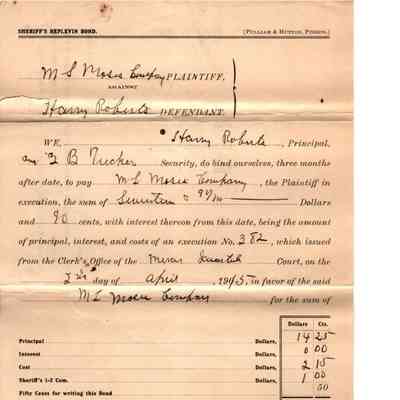 SHERIFF'S REPLEVIN BOND. (PULLIAM & HUTTON, PRINTS.)
M L Moses Company PLAINTIFF,
AGAINST
Harry Roberts DEFENDANT.
WE, Harry Roberts, Principal,
B Tucker Security, do bind ourselves, three months
after date, to pay M L Moses Company, the Plaintiff in
execution, the sum of Seventeen & 90/100 Dollars
and 90 cents, with interest thereon from this date, being the amount
of principal, interest, and costs of an execution No. 382, which issued
from the Clerk's Office of the Court, on the
day of April, 19 in favor of the said
M L Moses Company for the sum of
Dollars Cts.
Principal Dollars, 14 25
Interest Dollars, 0 00
Cost Dollars, 2 15
Sheriff's 1-2 Com. Dollars, 1 00
Fifty Cents for writing this Bond 50